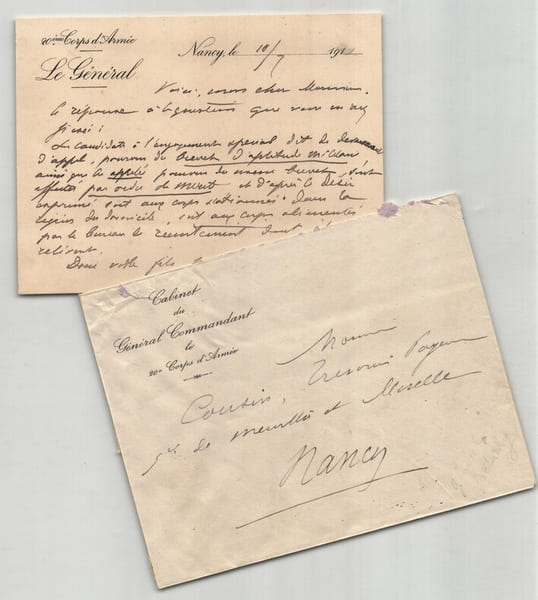 20ème Corps d'Armée
Le Général
Nancy, le 10/7 191
Voici, mon cher Monsieur,
la réponse à la question que vous m'avez
posée :
Les candidats à l'engagement spécial dit de devancement
d'appel, pourvus du brevet d'aptitude militaire
ainsi que les appelés pourvus du même brevet, sont
affectés par ordre de mérite et d'après le désir
exprimé soit aux corps stationnés dans la
région du domicile, soit aux corps alimentés
par le bureau de recrutement dont
relèvent.
Donc votre fils
Cabinet
du
Général Commandant
le
20e Corps d'Armée
Monsieur
Cousin, Trésorier Payeur
de Meurthe et Moselle
Nancy